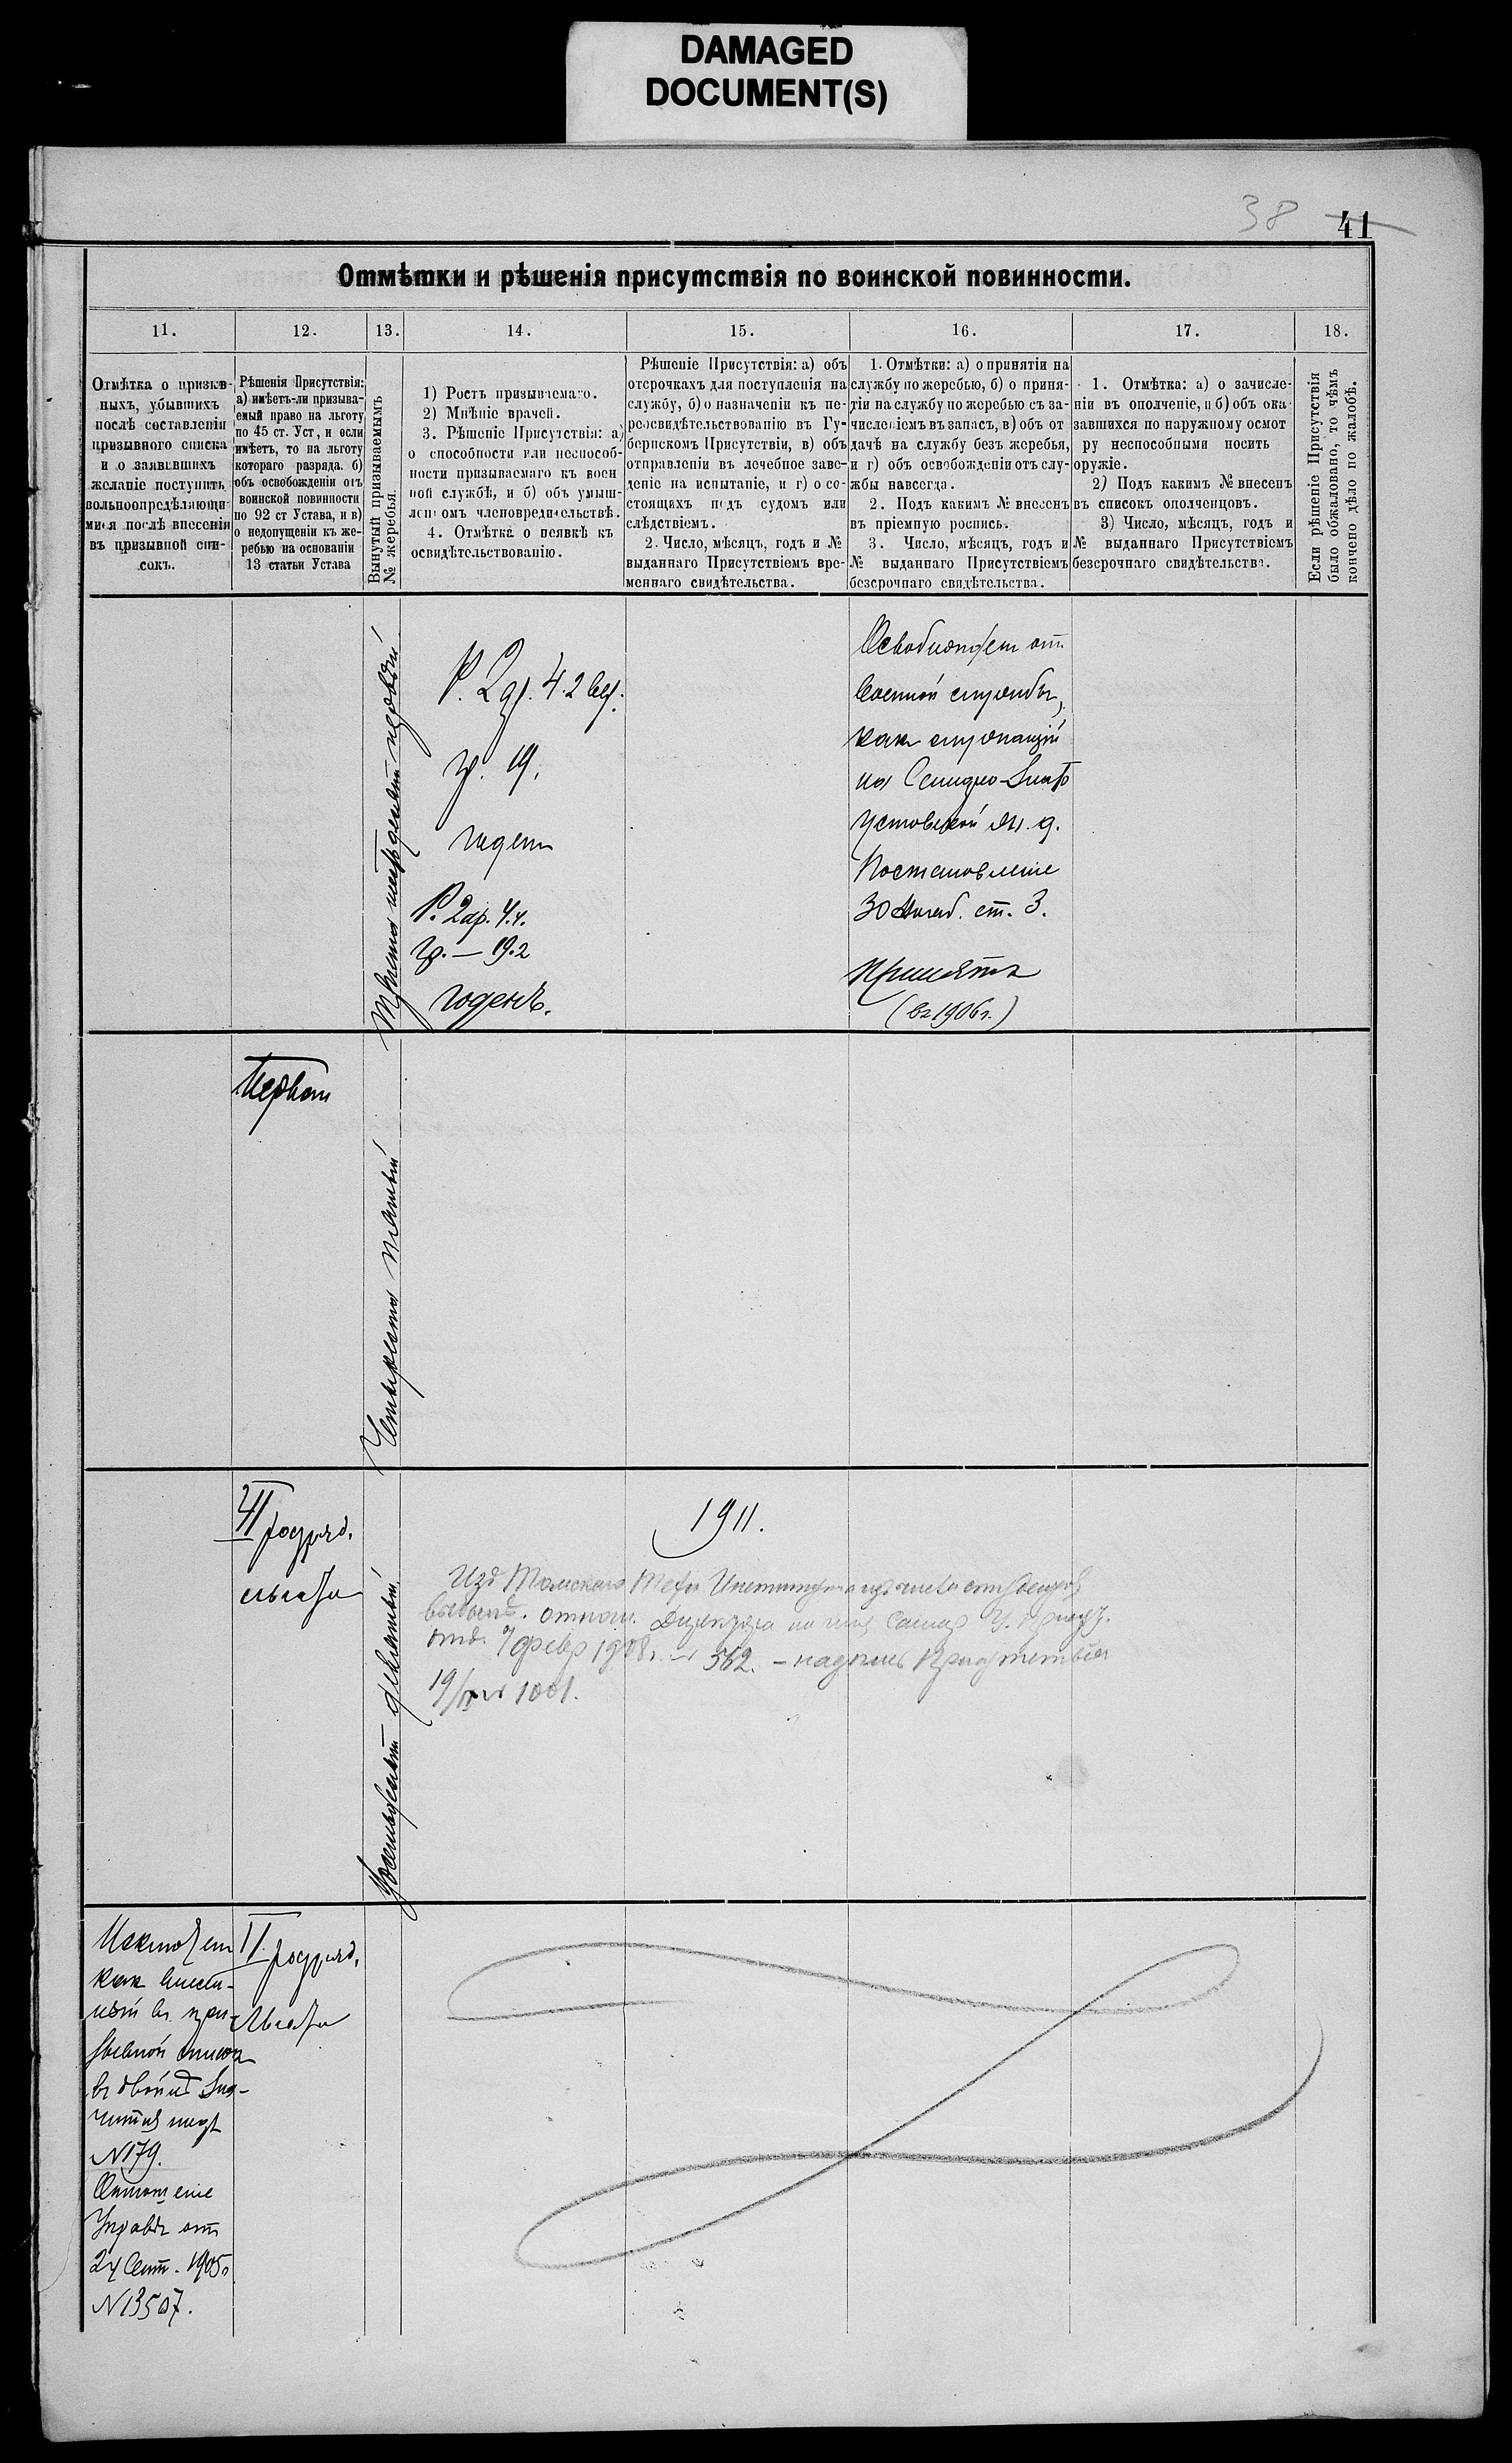 DAMAGED
DOCUMENT(S)
38 41
Отмѣтки и рѣшенія присутствія по воинской повинности.
11. 12. 13. 14. 15. 16. 17. 18.
Отмѣтка о призыв-
ныхъ, убывшихъ
послѣ составленія
призывного списка
и о заявившихъ
желаніе поступить
вольноопредѣляющи
мися послѣ внесенія
въ призывной спи-
сокъ.
Рѣшенія Присутствія:
а) имѣетъ-ли призыва-
емый право на льготу
по 45 ст. Уст, и если
имѣетъ, то на льготу
котораго разряда. б)
объ освобожденіи отъ
воинской повинности
по 92 ст Устава, и в)
о недопущеніи къ же-
ребью на основаніи
13 статьи Устава
Вынутый призываемымъ
№ жеребья.
1) Ростъ призываемаго.
2) Мнѣніе врачей.
3. Рѣшеніе Присутствія: а)
о способности или неспособ-
ности призываемаго къ воен
ной службѣ, и б) объ умыш-
лен омъ членовредительствѣ.
4. Отмѣтка о неявкѣ къ
освидѣтельствованію.
Рѣшеніе Присутствія: а) объ
отсрочкахъ для поступленія на
службу, б) о назначеніи къ пе-
реосвидѣтельствованію въ Гу-
бернскомъ Присутствіи, в) объ
отправленіи въ лечебное заве-
деніе на испытаніе, и г) о со-
стоящихъ подъ судомъ или
слѣдствіемъ.
2. Число, мѣсяцъ, годъ и №
выданнаго Присутствіемъ вре-
меннаго свидѣтельства.
1. Отмѣтки: а) о принятіи на
службу по жеребью, б) о приня-
тіи на службу по жеребью съ за-
численіемъ въ запасъ, в) объ от
дачѣ на службу безъ жеребья,
и г) объ освобожденіи отъ слу-
жбы навсегда.
2. Подъ какимъ № внесенъ
въ пріемную роспись.
3. Число, мѣсяцъ, годъ и
№ выданнаго Присутствіемъ
безсрочнаго свидѣтельства.
1. Отмѣтка: а) о зачисле-
ніи въ ополченіе, и б) объ ока
завшихся по наружному осмот
ру неспособными носить
оружіе.
2) Подъ какимъ № внесенъ
въ списокъ ополченцовъ.
3) Число, мѣсяцъ, годъ и
№ выданнаго Присутствіемъ
безсрочнаго свидѣтельства.
Если рѣшеніе Присутствія
было обжаловано, то чѣмъ
кончено дѣло по жалобѣ.
Триста шестьдесятъ первый
Р. 2 ар. 4. 2 вер.
гр. 19.
годенъ
Р. 2 ар. 4.
гр. — 19.2
годенъ.
Освобожденъ отъ
военной службы,
какъ служащій
на Семирно-Злато
устовской ж. д.
Постановленіе
30 ст. 3.
Принятъ
(въ 1906 г.)
Первой
Четыреста пятый
II разряд.
льгота
Восемьдесятъ девятый
1911.
Изъ Томскаго Техн Института изъ числа студентовъ
выбылъ. отнош. Директора на имя Самар У. Присут.
отъ 7 февр 1908 г. № 562. — надпись Присутствія
19/ № 1001.
Исключенъ
какъ внесен-
ный въ при-
зывной списокъ
въ двойнѣ Зна-
чится подъ
N 179.
Отношеніе
Управы отъ
24 Сент. 1905 г
N 13507.
II разряд.
Льгота